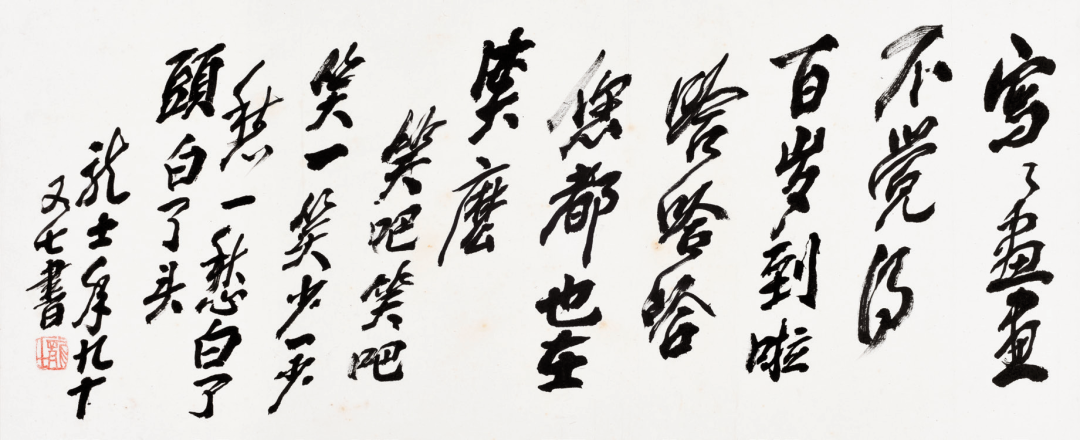 写々画画
不觉得
百岁到啦
哈哈哈
您都也在
笑麼
笑吧笑吧
笑一笑少一少
愁一愁白了
頭白了头
龙士年九十
又七書